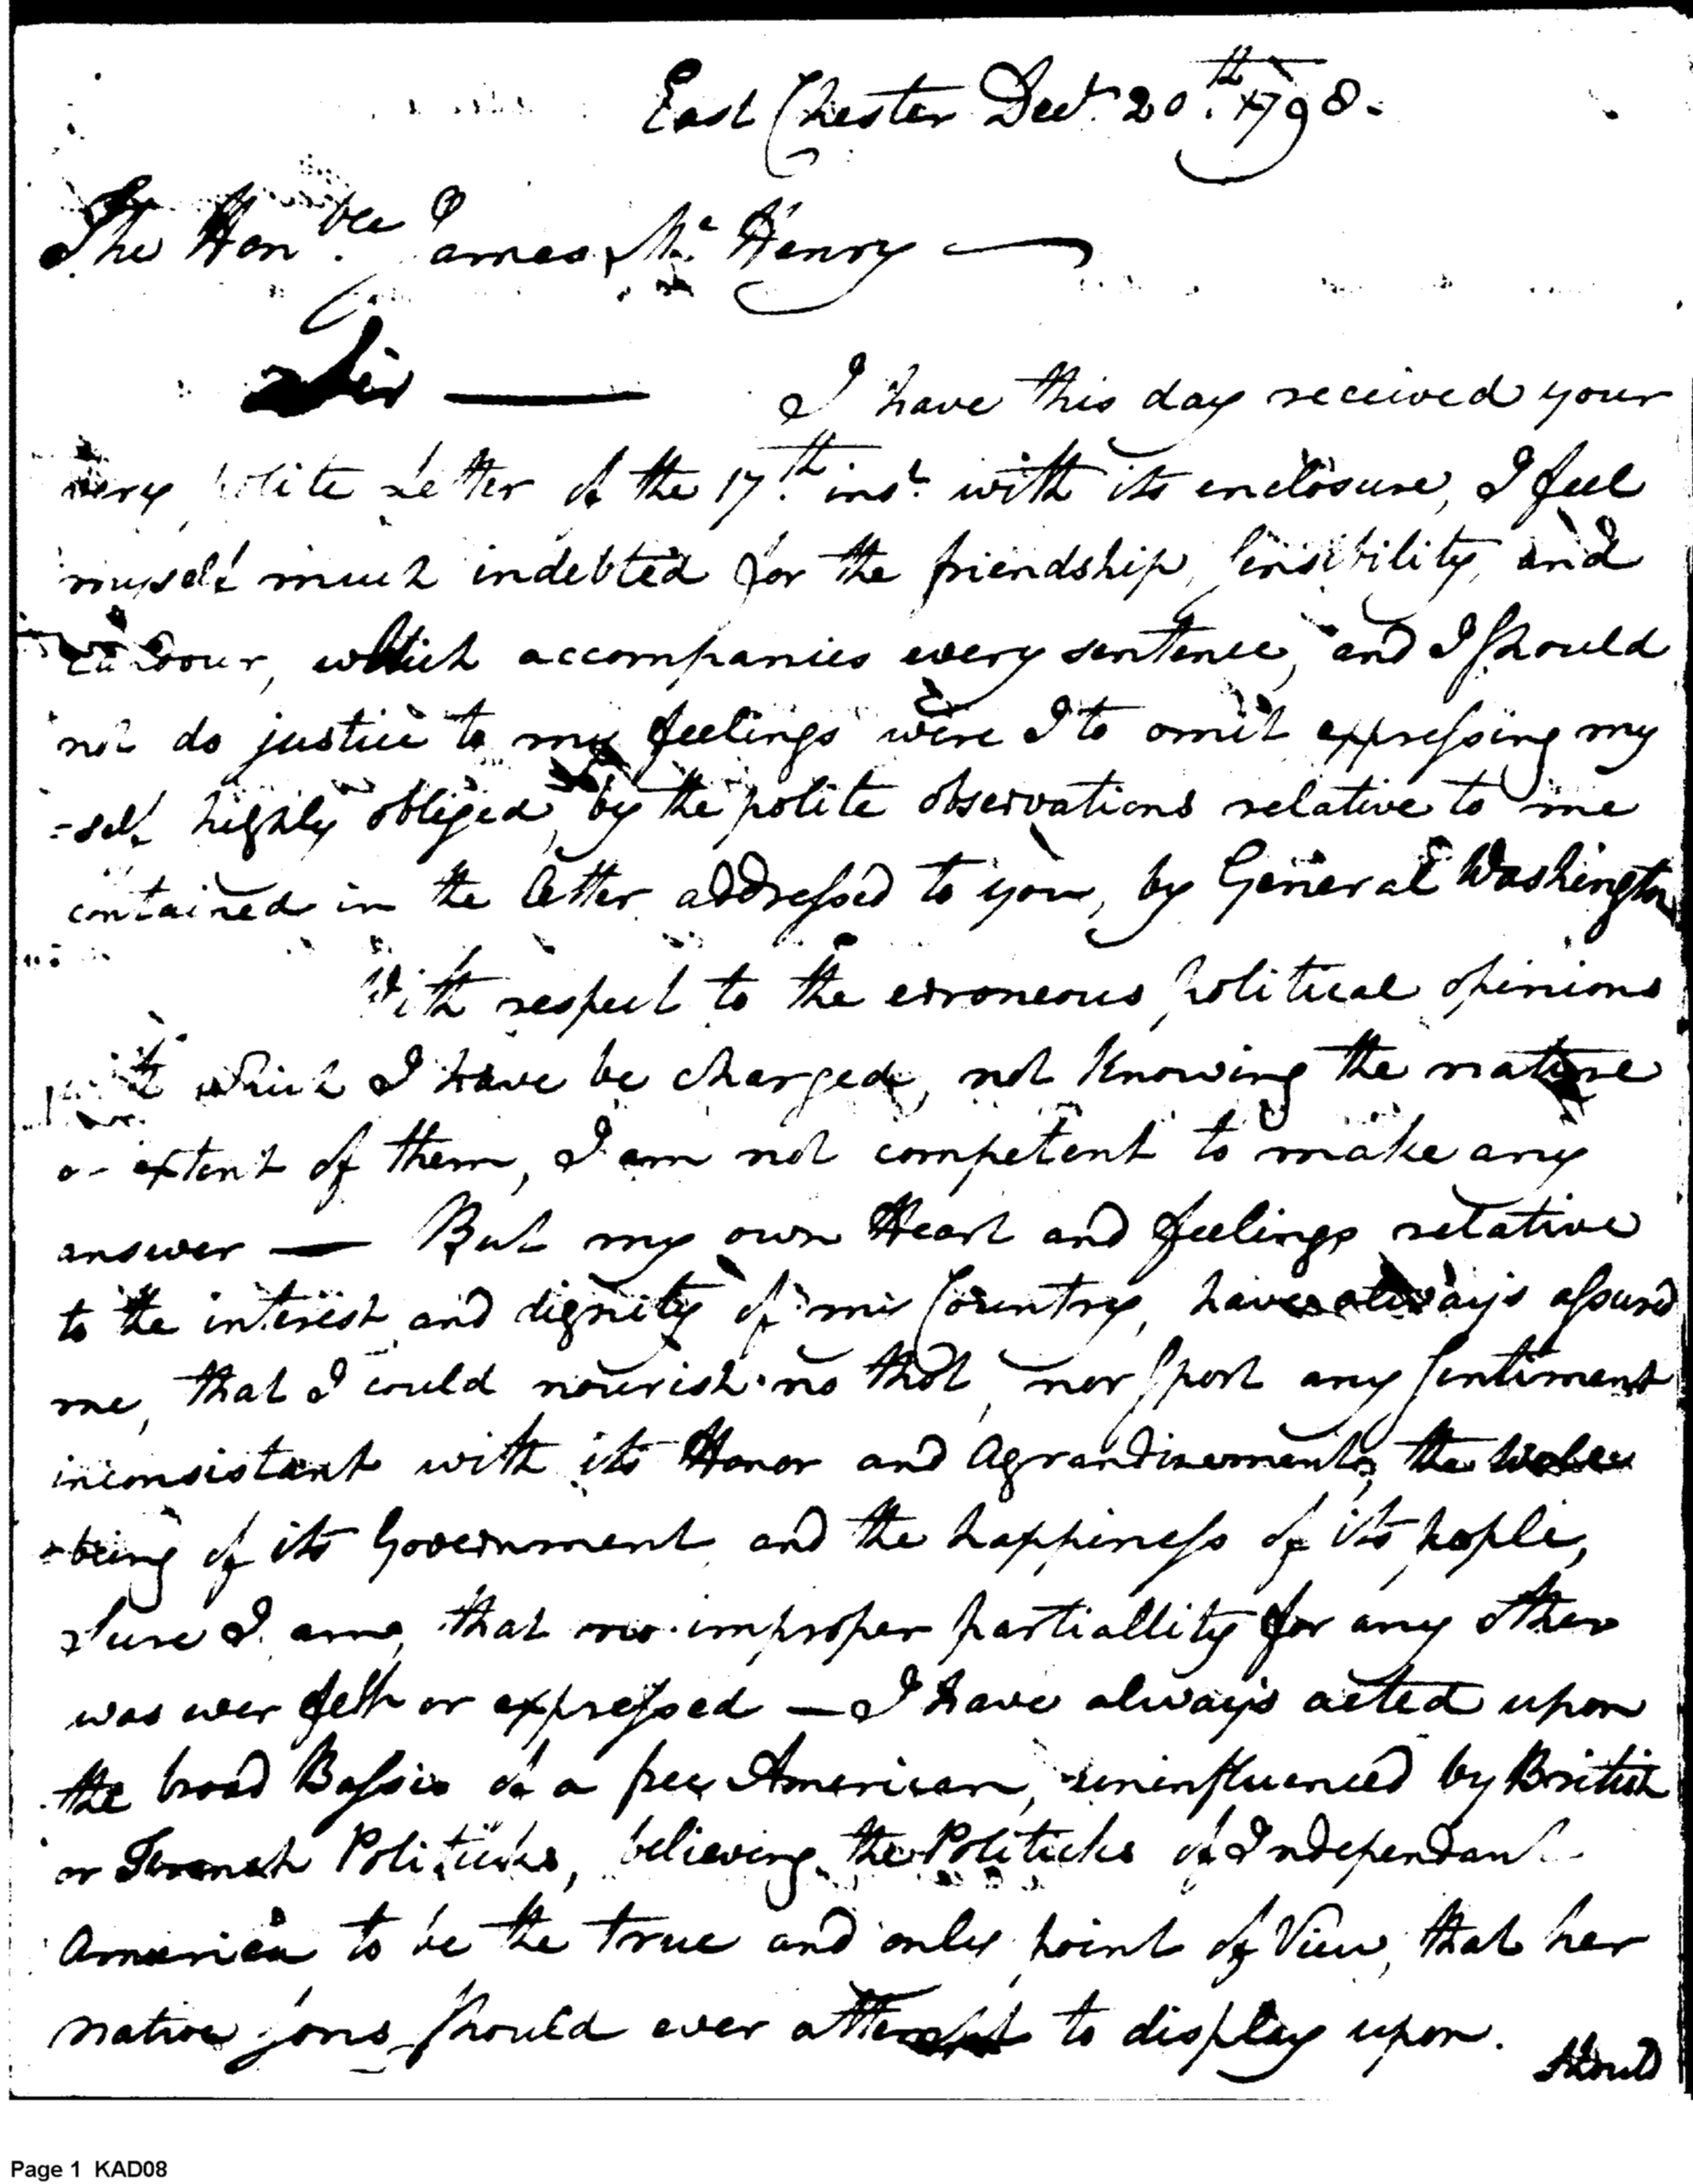 East Chester Decr. 20.th 1798.
The Honble. James Mc. Henry —
Sir — I have this day received your
very polite Letter of the 17.th inst. with its enclosure, I feel
myself much indebted for the friendship, Sensibility, and
candour, which accompanies every sentence, and I should
not do justice to my feelings were I to omit expressing my
=self highly obliged, by the polite observations relative to me
contained in the letter addressed to you, by General Washington
With respect to the erroneous political opinions
with which I have be charged, not Knowing the nature
or extent of them, I am not competent to make any
answer — But my own Heart and feelings relative
to the interest and dignity of my Country, have always assured
me, that I could nourish no thot, nor Sport any Sentiment
inconsistant with its Honor and Agrandizement, the
being of its Government and the happiness of its people,
Sure I am, that no improper partiallity for any other
was ever felt or expressed — I have always acted upon
the broad Bassis of a free American, uninfluenced by British
or French Politicks, believing the Politicks of Independant
America to be the true and only point of View, that her
native sons should ever attempt to display upon.
Should
Page 1 KAD08